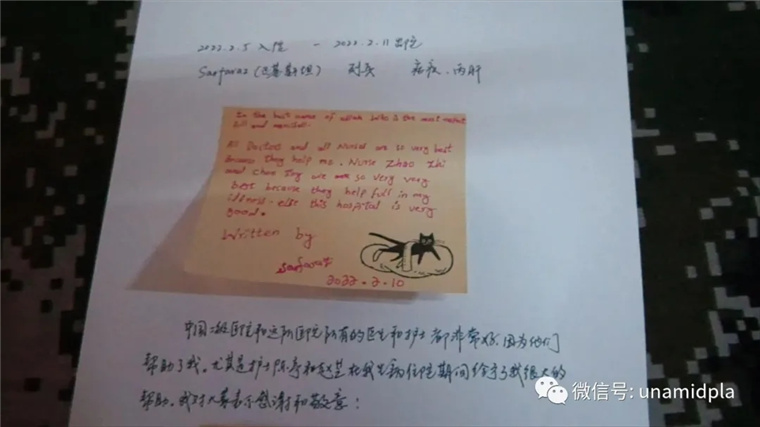 2022.2.5 入院 - 2022.2.11 出院
Sarfaraz (巴基斯坦) 列兵 疟疾、丙肝
In the best name of allah who is the most
full and merciful.
All Doctors and all Nurses are so very best
because they help me. Nurse Zhao Zhi
and Chen Ting we are so very very
best because they help full in my
illness. this hospital is very
Good.
Written by
Sarfaraz
2022-2-10
中国二级医院和运所有的医生和护士都非常好,因为他们
帮助了我,尤其是护士陈亭和赵芷在我生病住院期间给予了我很大的
帮助,我对大家表示感谢和敬意!
微信号: unamidpla